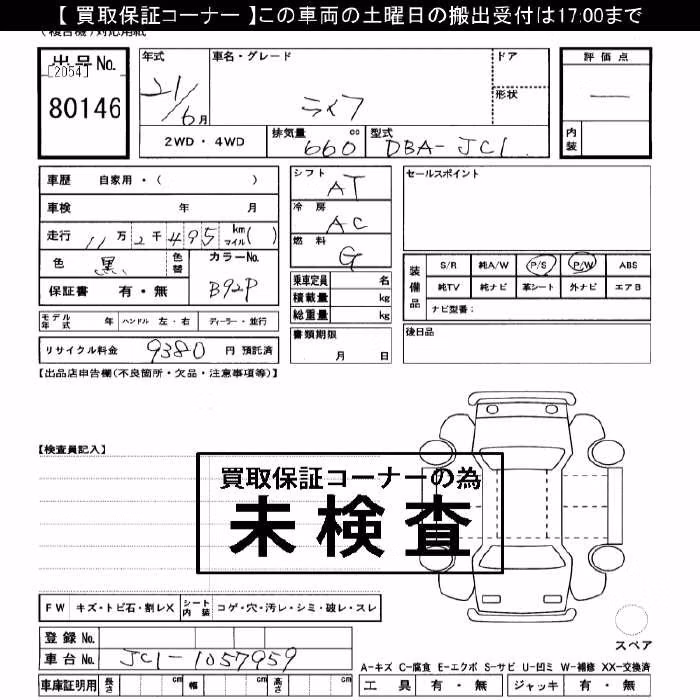 【 買取保証コーナー 】この車両の土曜日の搬出受付は17:00まで
出品No.
[2054]
80146
年式
21/6月
車名・グレード
ライフ
ドア
形状
評価点
―
内装
2WD・4WD
排気量 660 cc
型式 DBA-JC1
車歴 自家用・( )
車検 年 月
走行 11万2千495 km マイル( )
色 黒 色替
カラーNo. B92P
保証書 有・無
シフト AT
冷房 AC
燃料 G
乗車定員 名
積載量 kg
総重量 kg
書類期限
月 日
セールスポイント
装備品
S/R 純A/W P/S P/W ABS
純TV 純ナビ 革シート 外ナビ エアB
ナビ型番：
後日品
モデル年式 年 ハンドル 左・右 ディーラー・並行
リサイクル料金 9380 円 預託済
【出品店申告欄(不良箇所・欠品・注意事項等)】
【検査員記入】
買取保証コーナーの為
未検査
FW キズ・トビ石・割レX シート内装 コゲ・穴・汚レ・シミ・破レ・スレ
登録No.
車台No. JC1-1057959
スペア
A-キズ C-腐食 E-エクボ S-サビ U-凹ミ W-補修 XX-交換済
車庫証明用 長さ cm 幅 cm 高さ cm
工具 有・無 ジャッキ 有・無